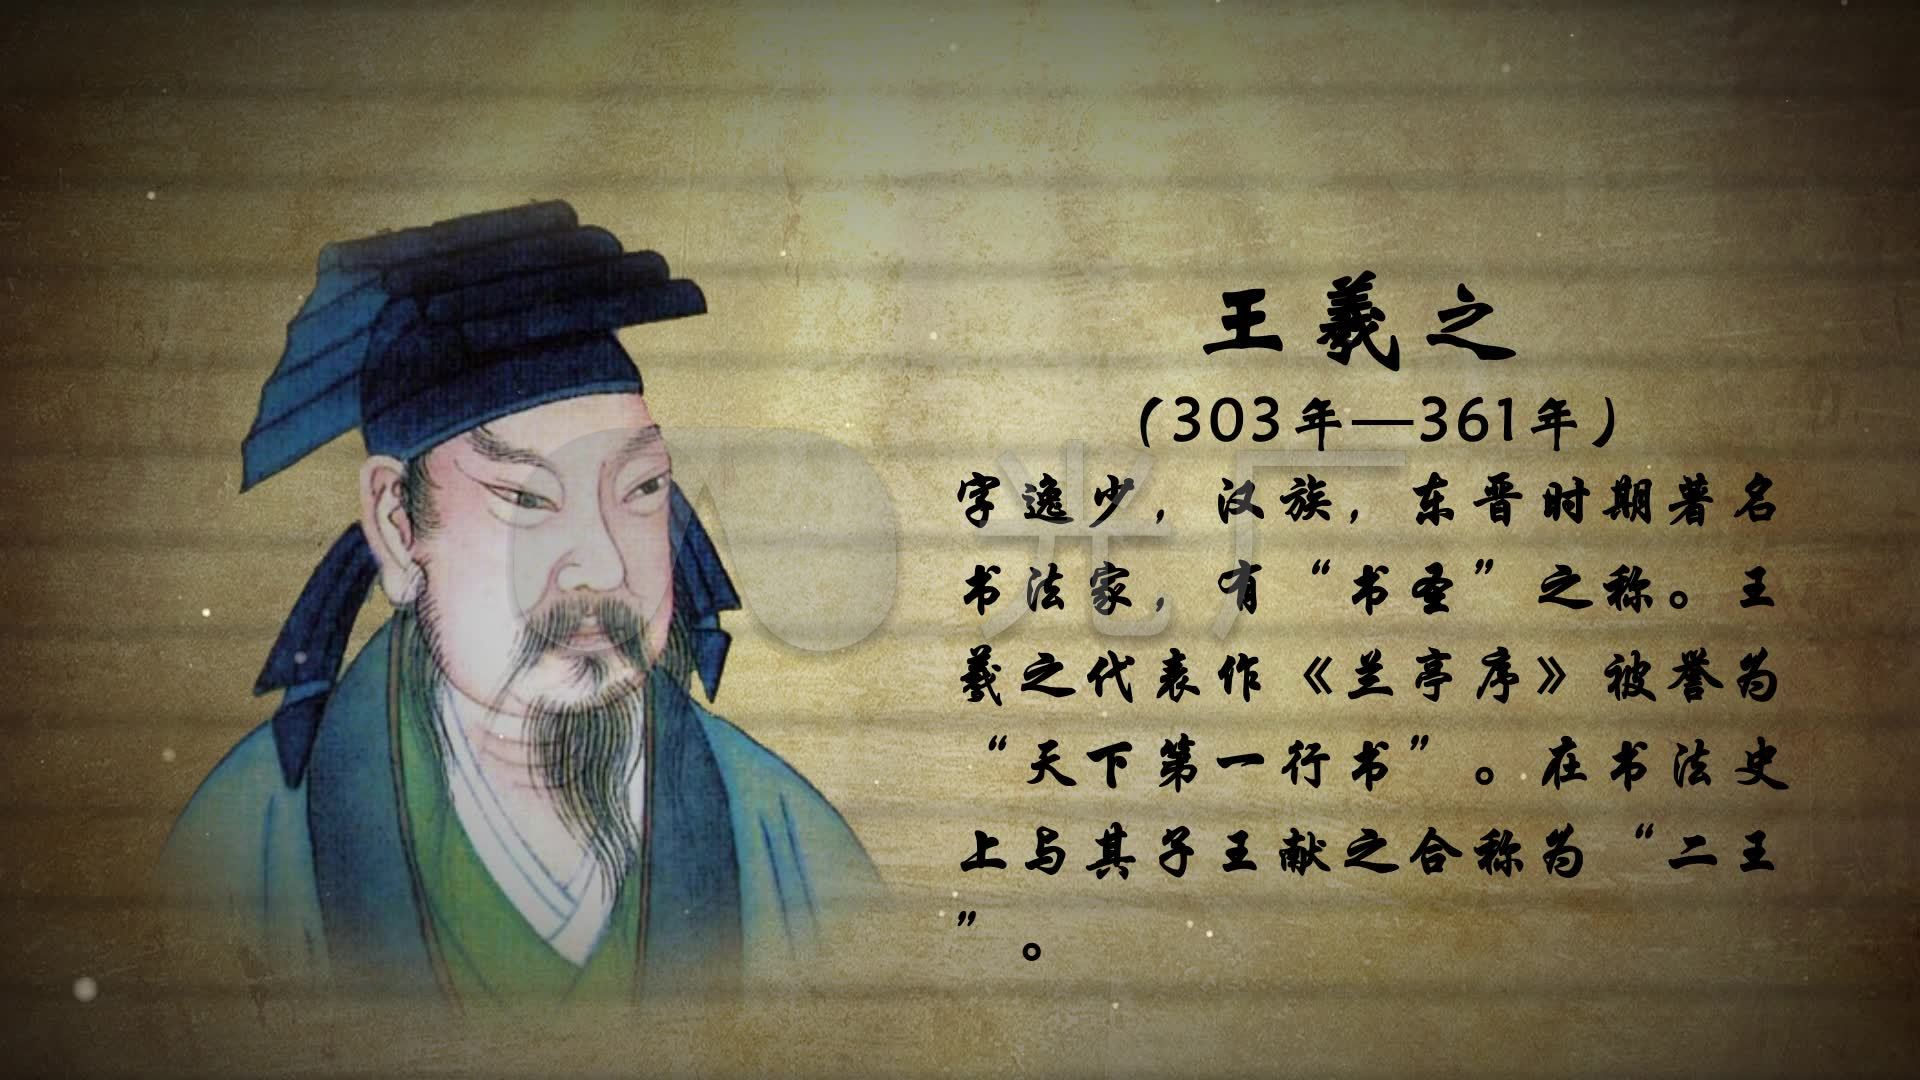 王羲之
(303年—361年)
字逸少，汉族，东晋时期著名
书法家，有“书圣”之称。王
羲之代表作《兰亭序》被誉为
“天下第一行书”。在书法史
上与其子王献之合称为“二王
”。
光厂